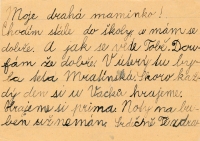 Moje drahá maminko!
Chodím stále do školy a mám se
dobře. A jak se vede Tobě. Dou-
fám že dobře. V úterý tu by
la teta Skoro kaž-
dý den si u Vacka hrajeme.
Hrajeme si prima. Noty na bu-
ben už nemám. Srdečně